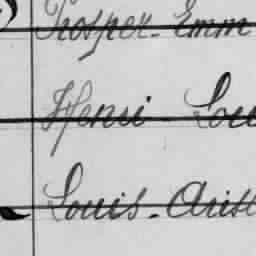 Prosper. Emm
Henri Lou
Louis. Arist